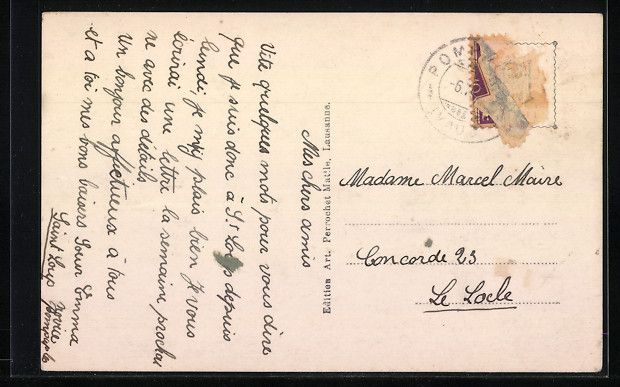 Mes chers amis
Vite quelques mots pour vous dire
que je suis donc à St Loup depuis
lundi, je m'y plais bien Je vous
écrirai une lettre la semaine prochai
ne avec des détails
Un bonjour affectueux à tous
et à toi mes bons baisers Soeur Emma
Saint Loup
Pompaples
Edition Art. Perrochet Matile, Lausanne.
Madame Marcel Maire
Concorde 23
Le Locle